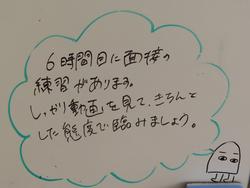 6時間目に面接の
練習があります。
しっかり動画を見て、きちんと
した態度で臨みましょう。